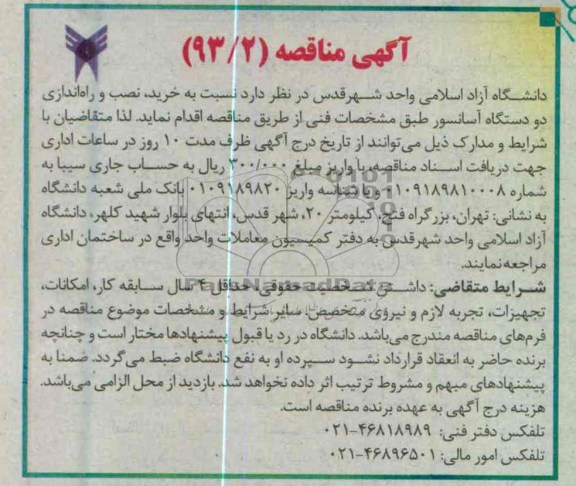 آگهی مناقصه (۹۳/۲)
دانشگاه آزاد اسلامی واحد شهرقدس در نظر دارد نسبت به خرید، نصب و راه‌اندازی
دو دستگاه آسانسور طبق مشخصات فنی از طریق مناقصه اقدام نماید. لذا متقاضیان با
شرایط و مدارک ذیل می‌توانند از تاریخ درج آگهی ظرف مدت ۱۰ روز در ساعات اداری
جهت دریافت اسناد مناقصه با واریز مبلغ ۳۰۰/۰۰۰ ریال به حساب جاری سیبا به
شماره ۰۱۰۹۱۸۹۸۱۰۰۰۸ و با شناسه واریز ۰۱۰۹۱۸۹۸۲۰ بانک ملی شعبه دانشگاه
به نشانی: تهران، بزرگراه فتح، کیلومتر ۲۰، شهر قدس، انتهای بلوار شهید کلهر، دانشگاه
آزاد اسلامی واحد شهرقدس به دفتر کمیسیون معاملات واحد واقع در ساختمان اداری
مراجعه نمایند.
شرایط متقاضی: داشتن شخصیت حقوقی، حداقل ۴ سال سابقه کار، امکانات،
تجهیزات، تجربه لازم و نیروی متخصص. سایر شرایط و مشخصات موضوع مناقصه در
فرم‌های مناقصه مندرج می‌باشد. دانشگاه در رد یا قبول پیشنهادها مختار است و چنانچه
برنده حاضر به انعقاد قرارداد نشود سپرده او به نفع دانشگاه ضبط می‌گردد. ضمنا به
پیشنهادهای مبهم و مشروط ترتیب اثر داده نخواهد شد. بازدید از محل الزامی می‌باشد.
هزینه درج آگهی به عهده برنده مناقصه است.
تلفکس دفتر فنی: ۴۶۸۱۸۹۸۹-۰۲۱
تلفکس امور مالی: ۴۶۸۹۶۵۰۱-۰۲۱